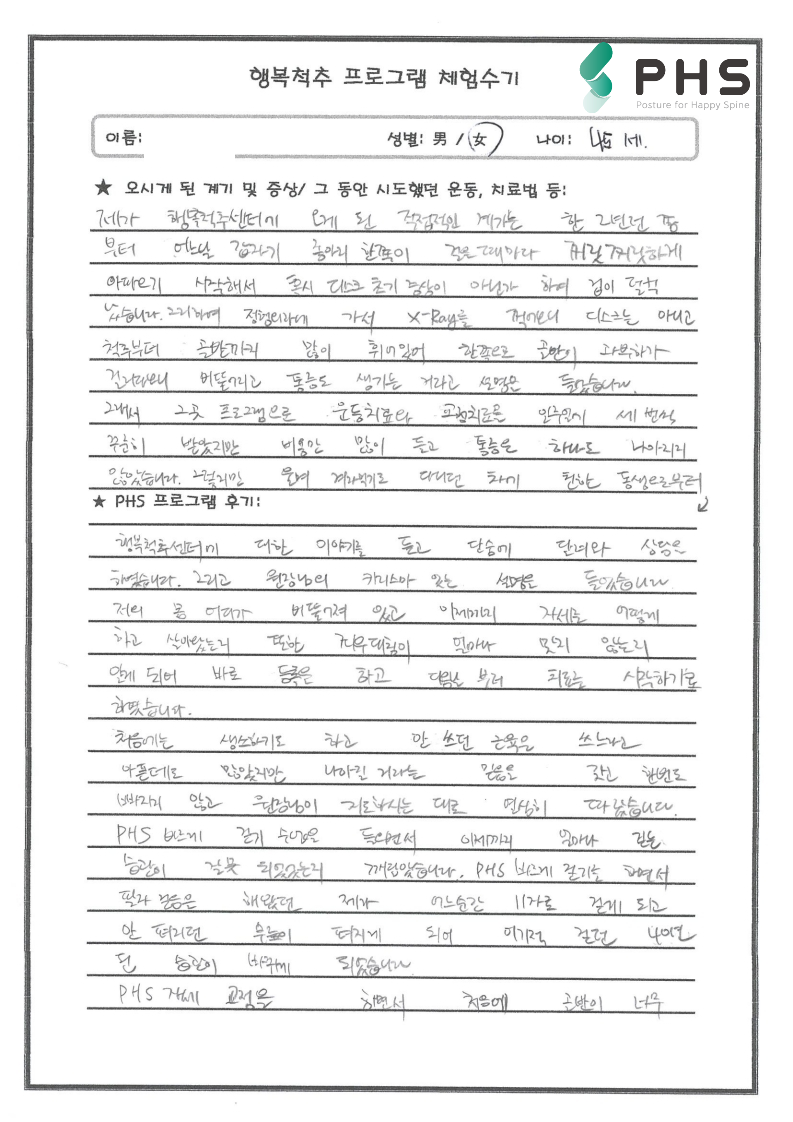 행복척추 프로그램 체험수기
PHS
Posture for Happy Spine
이름: 성별: 男 / 女 나이: 45 세.
★ 오시게 된 계기 및 증상/ 그 동안 시도했던 운동, 치료법 등:
제가 행복척추센터에 오게 된 직접적인 계기는 한 2년전 쯤
부터 어느날 갑자기 종아리 한쪽이 걸을때마다 찌릿찌릿하게
아파오기 시작해서 혹시 디스크 초기 증상이 아닌가 하여 겁이 덜컥
났습니다. 그리하여 정형외과에 가서 X-Ray를 찍어보니 디스크는 아니고
척추부터 골반까지 많이 휘어있어 한쪽으로 골반이
걷다보니 비뚤거리고 통증도 생기는 거라고 설명을 들었습니다.
그래서 그곳 프로그램으로 운동치료와 도수치료를 일주일에 세 번씩
꾸준히 받았지만 비용만 많이 들고 통증은 하나도 나아지지
않았습니다. 그렇지만 울며 겨자먹기로 다니던 차에 친한 동생으로부터
★ PHS 프로그램 후기:
행복척추센터에 대한 이야기를 듣고 단숨에 달려와 상담을
하였습니다. 그리고 원장님의 카리스마 있는 설명을 들었습니다.
저의 몸 어디가 비뚤어져 있고 이제까지 자세를 어떻게
하고 살아왔는지 또한 좌우대칭이 얼마나 맞지 않는지
알게 되어 바로 등록을 하고 다음날 부터 치료를 시작하기로
하였습니다.
처음에는 생소하기도 하고 안 쓰던 근육을 쓰느라고
아플데도 많았지만 나아질 거라는 믿음을 갖고 한번도
빠지지 않고 원장님이 지도하시는 대로 열심히 따랐습니다.
PHS 바르게 걷기 수업을 들으면서 이제까지 얼마나 걷는
습관이 잘못 되었었는지 깨달았습니다. PHS 바르게 걷기를 하면서
팔자 걸음을 해왔던 제가 어느순간 11자로 걷게 되고
안 펴지던 무릎이 펴지게 되어 이기적 걷던 나이든
된 습관이 바뀌게 되었습니다.
PHS 자세 교정을 하면서 처음에 골반이 너무